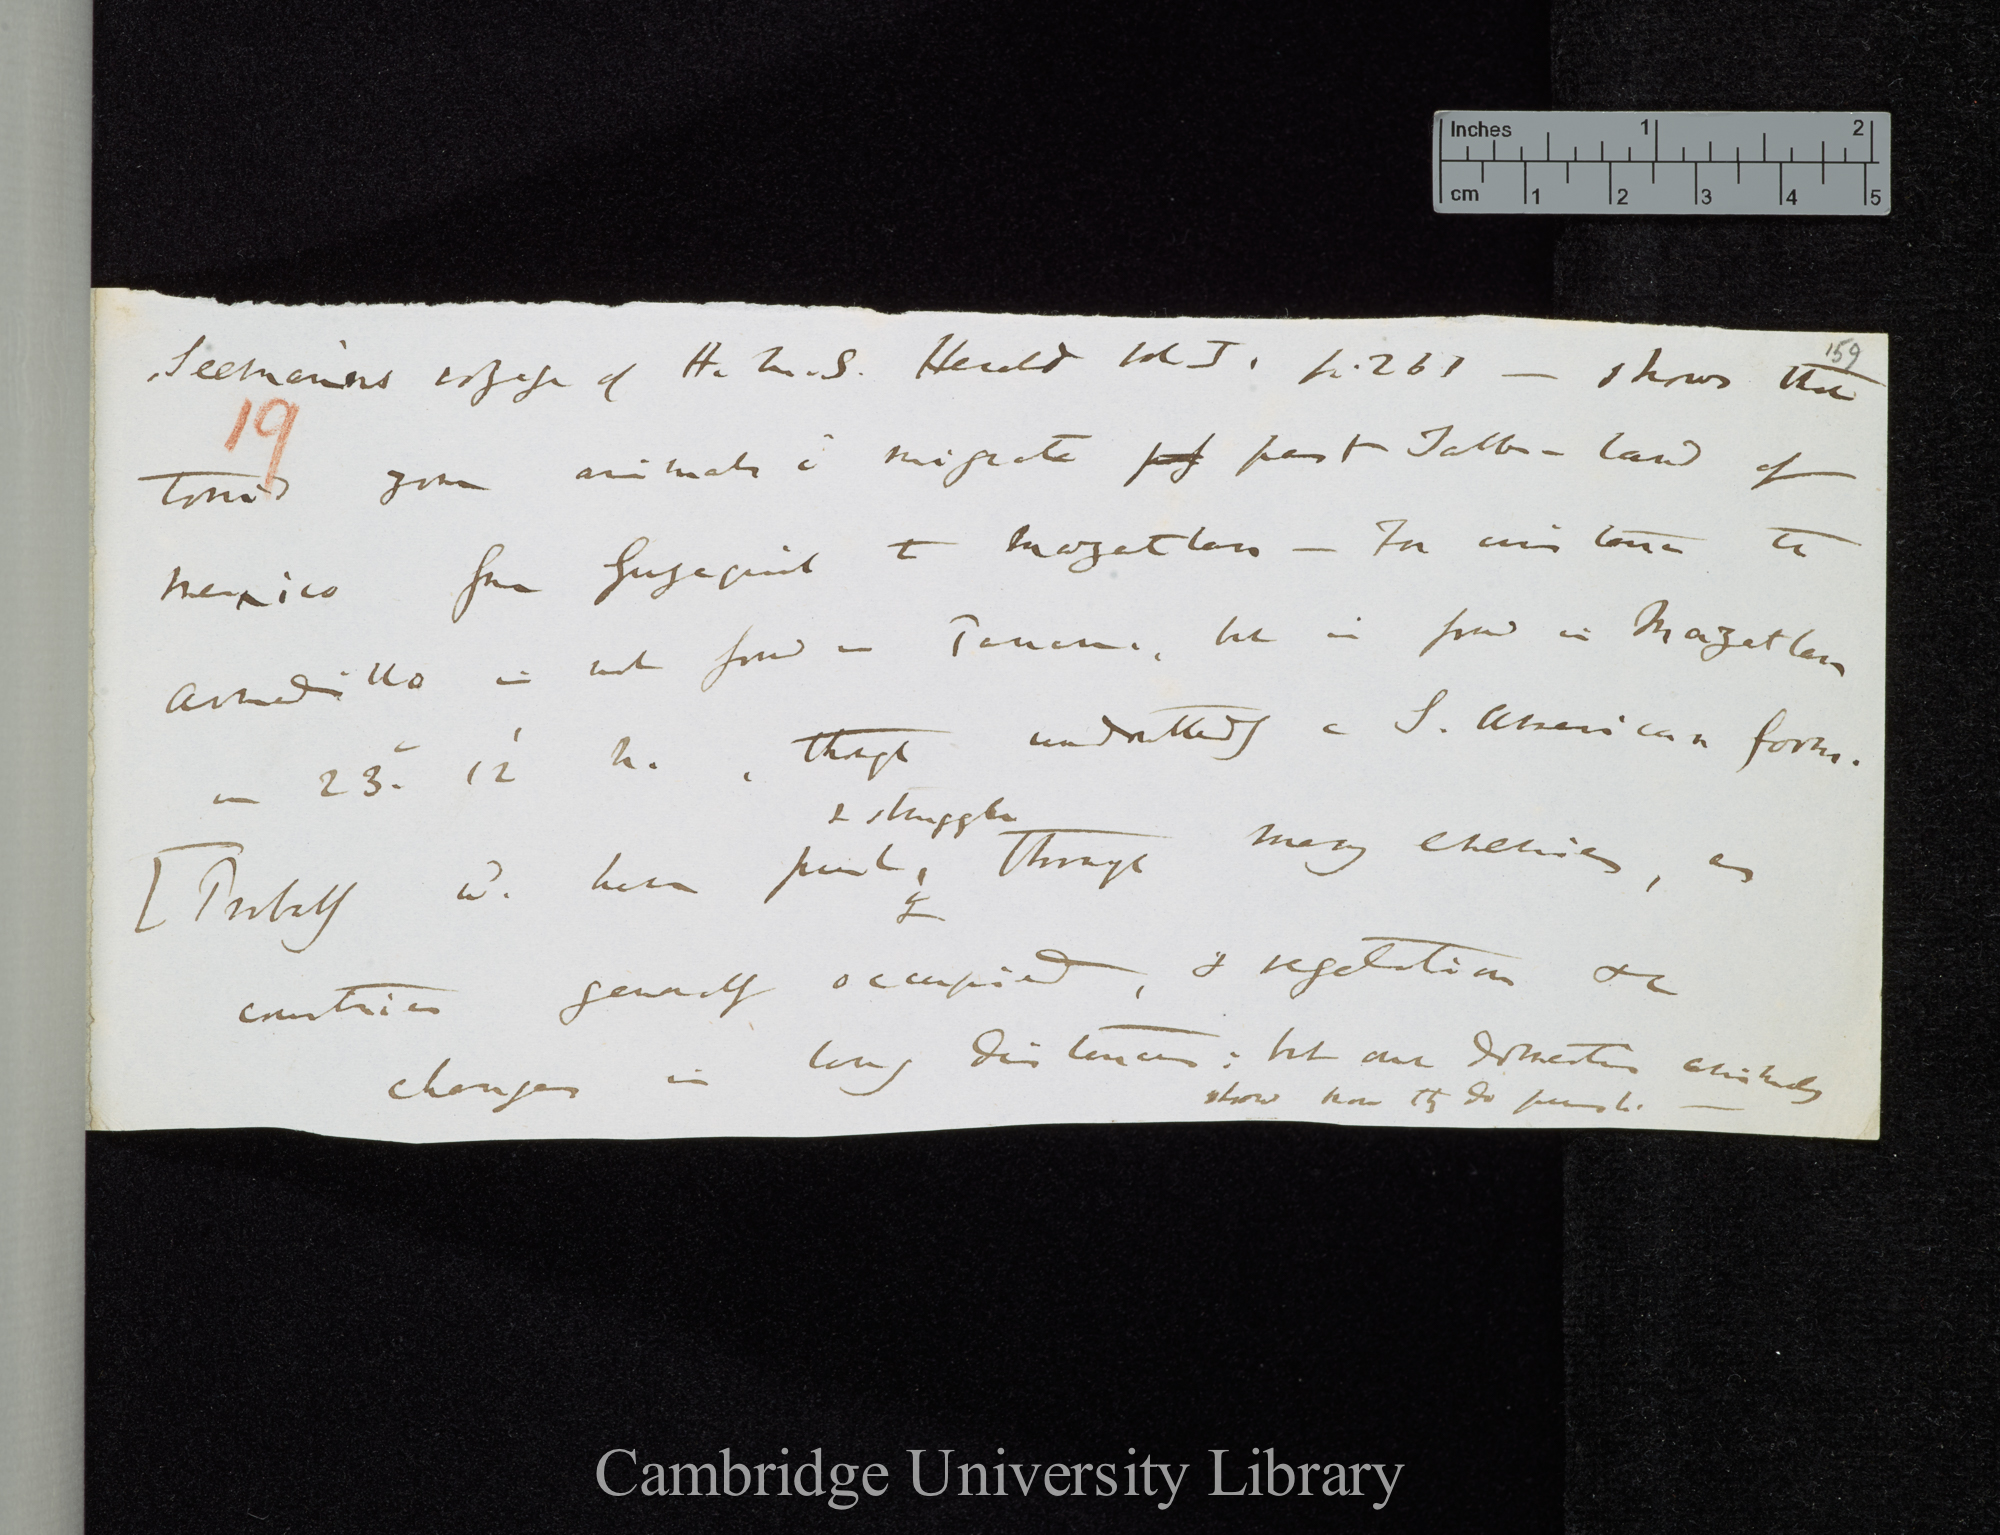 Inches 1 2
cm 1 2 3 4 5
159
Seemann's voyage of H. M. S. Herald vol I. p. 261 — shows that
19
torrid zone animals migrate past Table-land of
Mexico from Guayaquil to Mazatlan — For instance the
Armadillo is not found in Panama, but is found in Mazatlan
in 23.° 12' N., though undoubtedly a S. American form.
& struggle
[Probably wd. have to push, through many enemies, as
countries generally occupied, & vegetation &c
changes in long distances; but our domestic animals
show how they do punish. —
Cambridge University Library